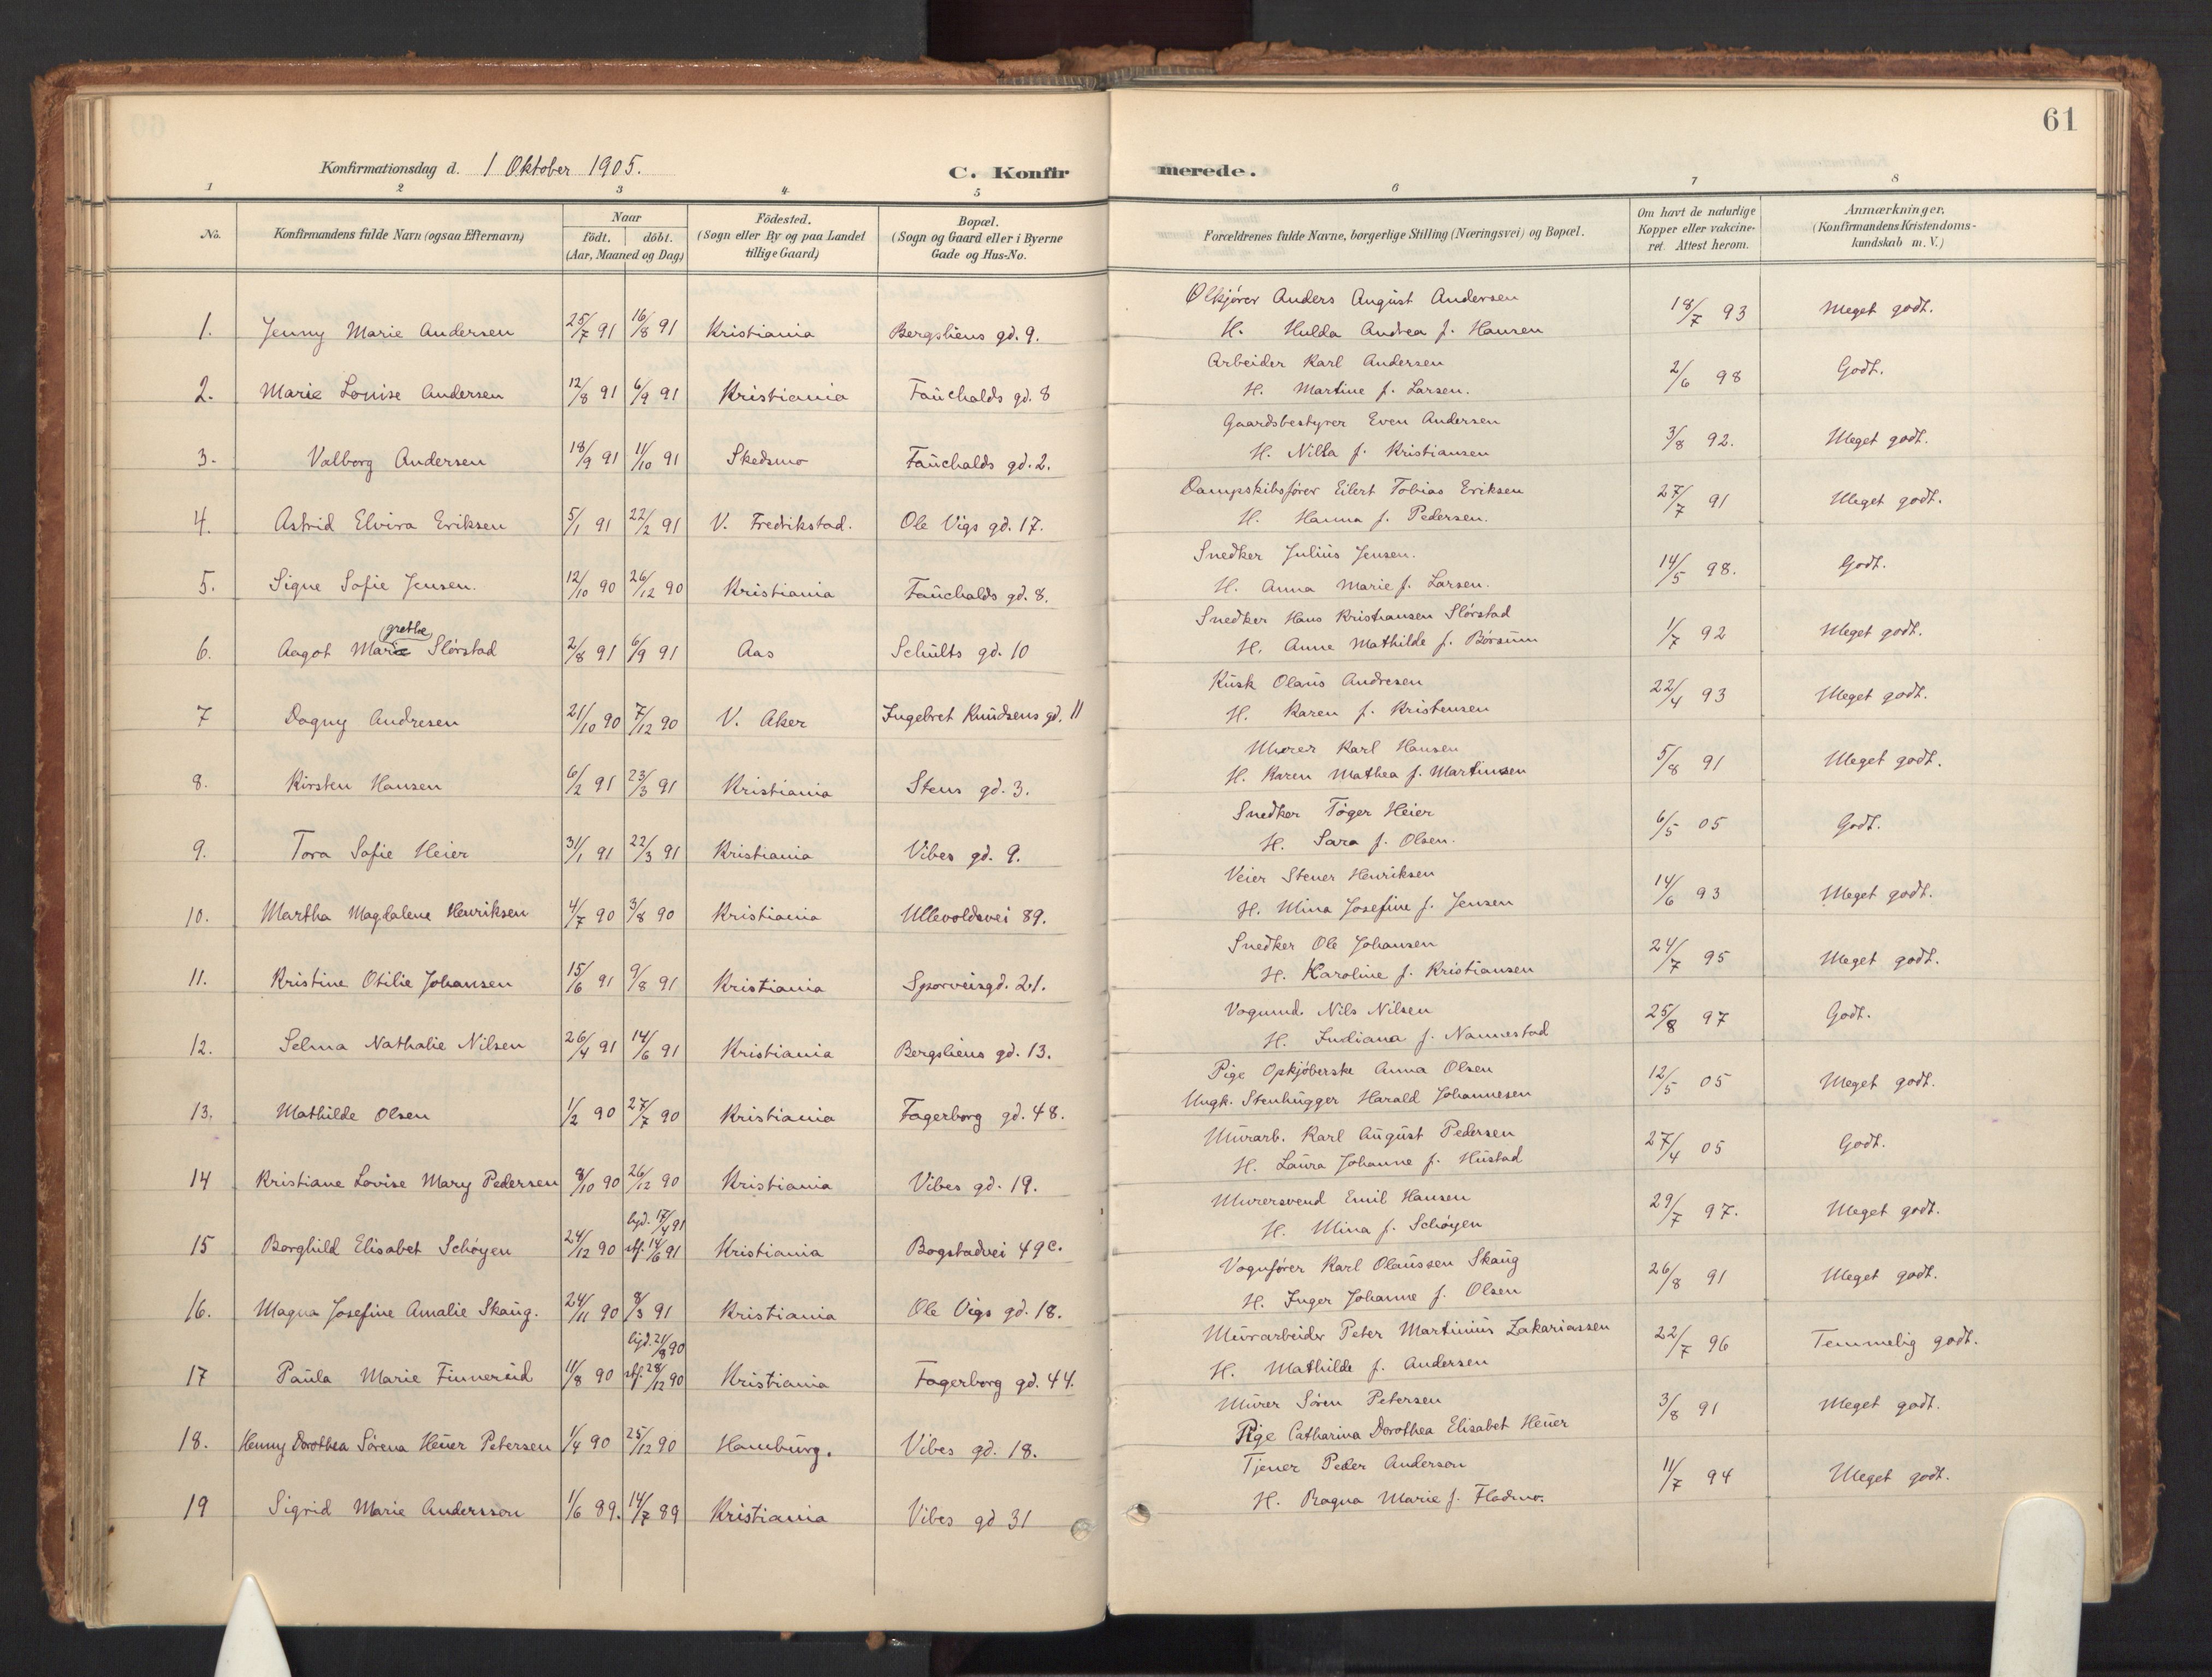 61
Konfirmationsdag d. 1 Oktober 1905.
C. Konfir
merede.
1 2 3 4 5 6 7 8
No.
Konfirmandens fulde Navn (ogsaa Efternavn)
Naar
födt. döbt.
(Aar, Maaned og Dag)
Födested.
(Sogn eller By og paa Landet
tillige Gaard)
Bopæl.
(Sogn og Gaard eller i Byerne
Gade og Hus-No.
Forældrenes fulde Navne, borgerlige Stilling (Næringsvei) og Bopæl.
Om havt de naturlige
Kopper eller vakcine-
ret. Attest herom.
Anmærkninger.
(Konfirmandens Kristendoms-
kundskab m. V.)
1. Jenny Marie Andersen 25/7 91 16/8 91 Kristiania Bergsliens gd. 9.
Ølkjörer Anders August Andersen
H. Hulda Andrea f. Hansen
18/7 93 Meget godt.
2. Marie Lovise Andersen 12/8 91 6/9 91 Kristiania Fauchalds gd. 8
Arbeider Karl Andersen
H. Martine f. Larsen.
2/6 98 Godt.
3. Valborg Andersen 18/9 91 11/10 91 Skedsmo Fauchalds gd. 2.
Gaardsbestyrer Even Andersen
H. Nilla f. Kristiansen
3/8 92. Meget godt.
4. Astrid Elvira Eriksen 5/1 91 22/2 91 V. Fredrikstad. Ole Vigs gd. 17.
Dampskibsförer Eilert Tobias Eriksen
H. Hanna f. Pedersen.
27/7 91 Meget godt.
5. Signe Sofie Jensen. 12/10 90 26/12 90 Kristiania Fauchalds gd. 8.
Snedker Julius Jensen.
H. Anna Marie f. Larsen.
14/5 98. Godt.
grethe
6. Aagot Marie Slörstad 2/8 91 6/9 91 Aas Schults gd. 10
Snedker Hans Kristiansen Slörstad
H. Anne Mathilde f. Börsum
1/7 92 Meget godt.
7 Dagny Andresen 21/10 90 7/12 90 V. Aker Ingebret Knudsens gd. 11
Kusk Olaus Andresen
H. Karen f. Kristensen
22/4 93 Meget godt.
8. Kirsten Hansen 6/2 91 23/3 91 Kristiania Stens gd. 3.
Murer Karl Hansen
H. Karen Mathea f. Martinsen
5/8 91 Meget godt.
9. Tora Sofie Heier 31/1 91 22/3 91 Kristiania Vibes gd. 9.
Snedker Töger Heier
H. Sara f. Olsen.
6/5 05 Godt.
10. Martha Magdalene Henriksen 4/7 90 3/8 90 Kristiania Ullevoldsvei 89.
Veier Stener Henriksen
H. Mina Josefine f. Jensen
14/6 93 Meget godt.
11. Kristine Otilie Johansen 15/6 91 9/8 91 Kristiania Sporveisgd. 21.
Snedker Ole Johansen
H. Karoline f. Kristiansen
24/7 95 Meget godt.
12. Selma Nathalie Nilsen 26/4 91 14/6 91 Kristiania Bergsliens gd. 13.
Vognmd. Nils Nilsen
H. Indiana f. Nannestad
25/8 97 Godt.
13. Mathilde Olsen 1/2 90 27/7 90 Kristiania Fagerborg gd. 48.
Pige Opkjöberske Anna Olsen
Ungk. Stenhugger Harald Johannesen
12/5 05 Meget godt.
14 Kristiane Lovise Mary Pedersen 9/10 90 26/12 90 Kristiania Vibes gd. 19.
Murarb. Karl August Pedersen
H. Laura Johanne f. Hustad
27/4 05 Godt.
hjd. 17/4 91
15 Borghild Elisabet Schöyen 24/12 90 stf. 14/6 91 Kristiania Bogstadvei 49c.
Murersvend Emil Hansen
H. Mina f. Schöyen
29/7 97. Meget godt.
16. Magna Josefine Amalie Skaug. 24/11 90 8/3 91 Kristiania Ole Vigs gd. 18.
Vognförer Karl Olaussen Skaug
H. Inger Johanne f. Olsen
26/8 91 Meget godt.
hjd. 21/8 90
17 Paula Marie Finnerud 11/8 90 stf. 28/12 90 Kristiania Fagerborg gd. 44.
Murarbeider Peter Martinius Zakariassen
H. Mathilde f. Andersen
22/7 96 Temmelig godt.
18. Henny Dorothea Sörena Heuer Petersen 1/4 90 25/12 90 Hamburg. Vibes gd. 18.
Murer Sören Petersen
Pige Catharina Dorothea Elisabet Heuer
3/8 91 Meget godt.
19 Sigrid Marie Andersson 1/6 89. 14/7 89 Kristiania Vibes gd 31
Tjener Peder Anderson
H. Ragna Marie f. Fladmo.
11/7 94 Meget godt.